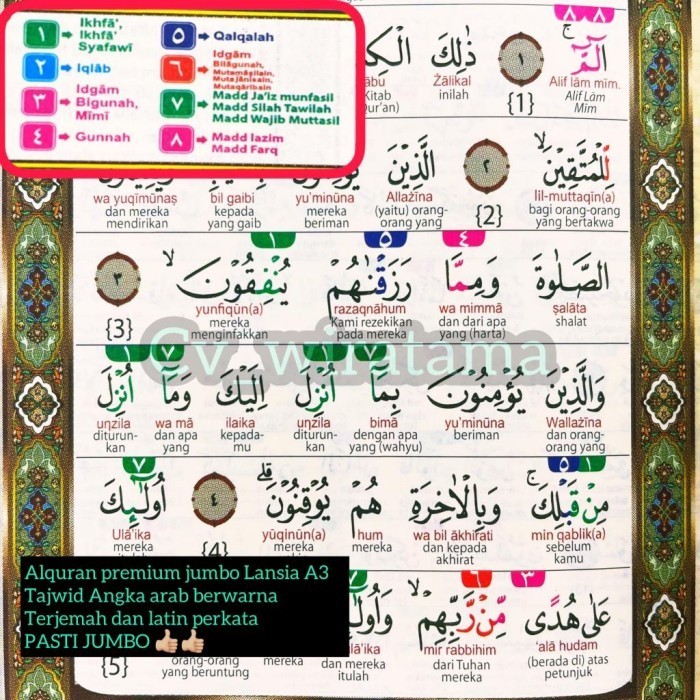 ١ Ikhfā', Ikhfā' Syafawī
٢ Iqlāb
٣ Idgām Bigunah, Mīmī
٤ Gunnah
٥ Qalqalah
٦ Idgam Bilāgunah, Mutamāṡilain, Mutajānisain, Mutaqāribain
٧ Madd Ja'iz munfasil Madd Silah Tawilah Madd Wajib Muttasil
٨ Madd lazim Madd Farq
٨ ٨
الۤمّۤ ۚ ١ ذٰلِكَ
Alif lām mīm. Żālikal
Alif Lām Mim {1} inilah
لِّلْمُتَّقِيْنَۙ ٢ الَّذِيْنَ
lil-muttaqīn(a) Allażīna yu'minūna bil gaibi wa yuqīmūnaṣ
bagi orang-orang yang bertakwa {2} (yaitu) orang-orang yang mereka beriman kepada yang gaib dan mereka mendirikan
٤ ٥ ١
الصَّلٰوةَ وَمِمَّا رَزَقْنٰهُمْ يُنْفِقُوْنَۙ ٣
ṣalāta wa mimmā razaqnāhum yunfiqūn(a)
shalat dan dari apa yang (harta) Kami rezekikan pada mereka mereka menginfakkan {3}
Cv_wiratama
٧ ١ ٧ ١
وَالَّذِيْنَ يُؤْمِنُوْنَ بِمَآ اُنْزِلَ اِلَيْكَ وَمَآ اُنْزِلَ
Wallażīna yu'minūna bimā unzila ilaika wa mā unzila
dan orang-orang beriman dengan apa yang (wahyu) diturun-kan kepada-mu dan apa yang diturun-kan
١ ٥ ٧
مِنْ قَبْلِكَ ۚ وَبِالْاٰخِرَةِ هُمْ يُوْقِنُوْنَۗ ٤ اُولٰۤىِٕكَ
min qablik(a) wa bil ākhirati hum yūqinūn(a) Ulā'ika
sebelum kamu dan kepada akhirat mereka {4} mereka
٣ ٦ ٧
عَلٰى هُدًى مِّنْ رَّبِّهِمْ ۙ
'alā hudam mir rabbihim
(berada di) atas petunjuk dari Tuhan mereka dan mereka itulah mereka orang-orang yang beruntung {5}
Alquran premium jumbo Lansia A3
Tajwid Angka arab berwarna
Terjemah dan latin perkata
PASTI JUMBO 👍🏻👍🏻